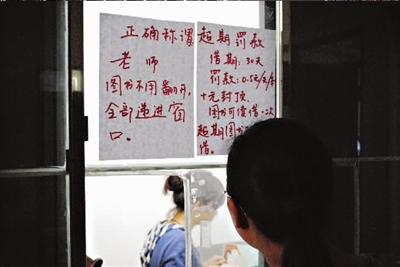 正确称谓
老师
图书不用翻开,
全部递进窗
口。
超期罚款
借期:30天
罚款:0.5元/天/册
十元封顶。
图书可续借一次
超期图书
借。